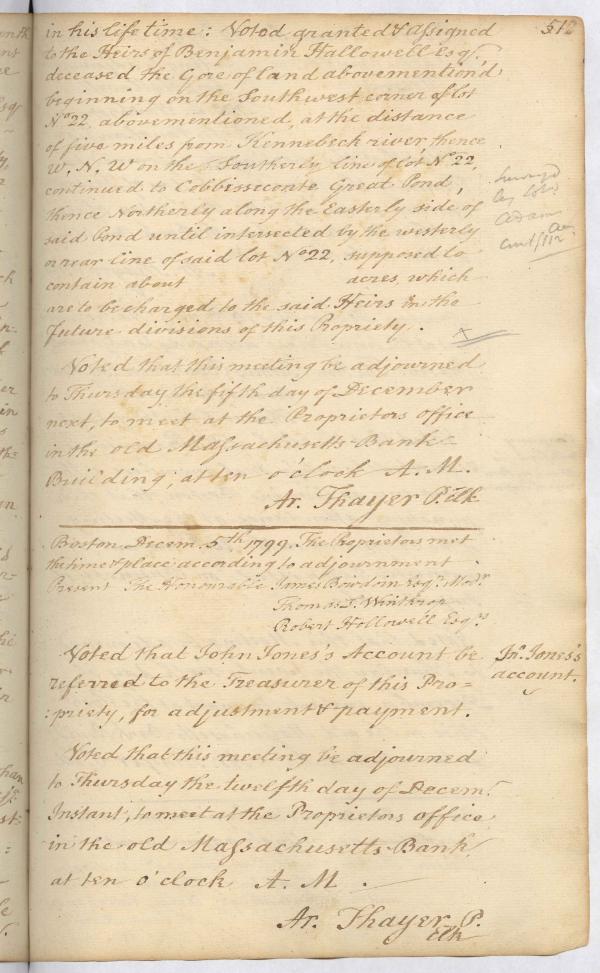 512
in his life time: Voted granted & assigned
to the Heirs of Benjamin Hallowell Esqr,
deceased the Gore of land abovemention'd
beginning on the Southwest corner of lot
No 22, abovementioned, at the distance
of five miles from Kennebeck river, thence
W. N. W on the Southerly line of lot No 22,
continued to Cobbisseconte Great Pond,
thence Northerly along the Easterly side of
said Pond until intersected by the westerly
or rear line of said lot No 22, supposed to
contain about acres, which
are to be charged to the said Heirs in the
future divisions of this Propriety.
Voted that this meeting be adjourned
to Thursday the fifth day of December
next, to meet at the Proprietors office
in the old Massachusetts Bank-
Building; at ten o'clock A. M.
Ar. Thayer P. Clk
Boston Decem. 5th 1799. The Proprietors met
the time & place according to adjournment
Present The Honourable James Bowdoin Esqr. Modr
Thomas L. Winthrop
Robert Hallowell Esqrs
Voted that John Jones's Account be
referred to the Treasurer of this Pro=
:priety, for adjustment & payment.
Jno. Jones's
account.
Voted that this meeting be adjourned
to Thursday the twelfth day of Decem.
Instant, to meet at the Proprietors office
in the old Massachusetts Bank
at ten o'clock A. M.
Ar. Thayer P.
Clk